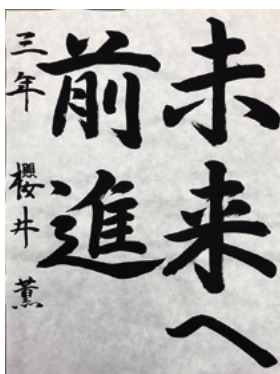 未来へ
前進
三年 櫻井 薫